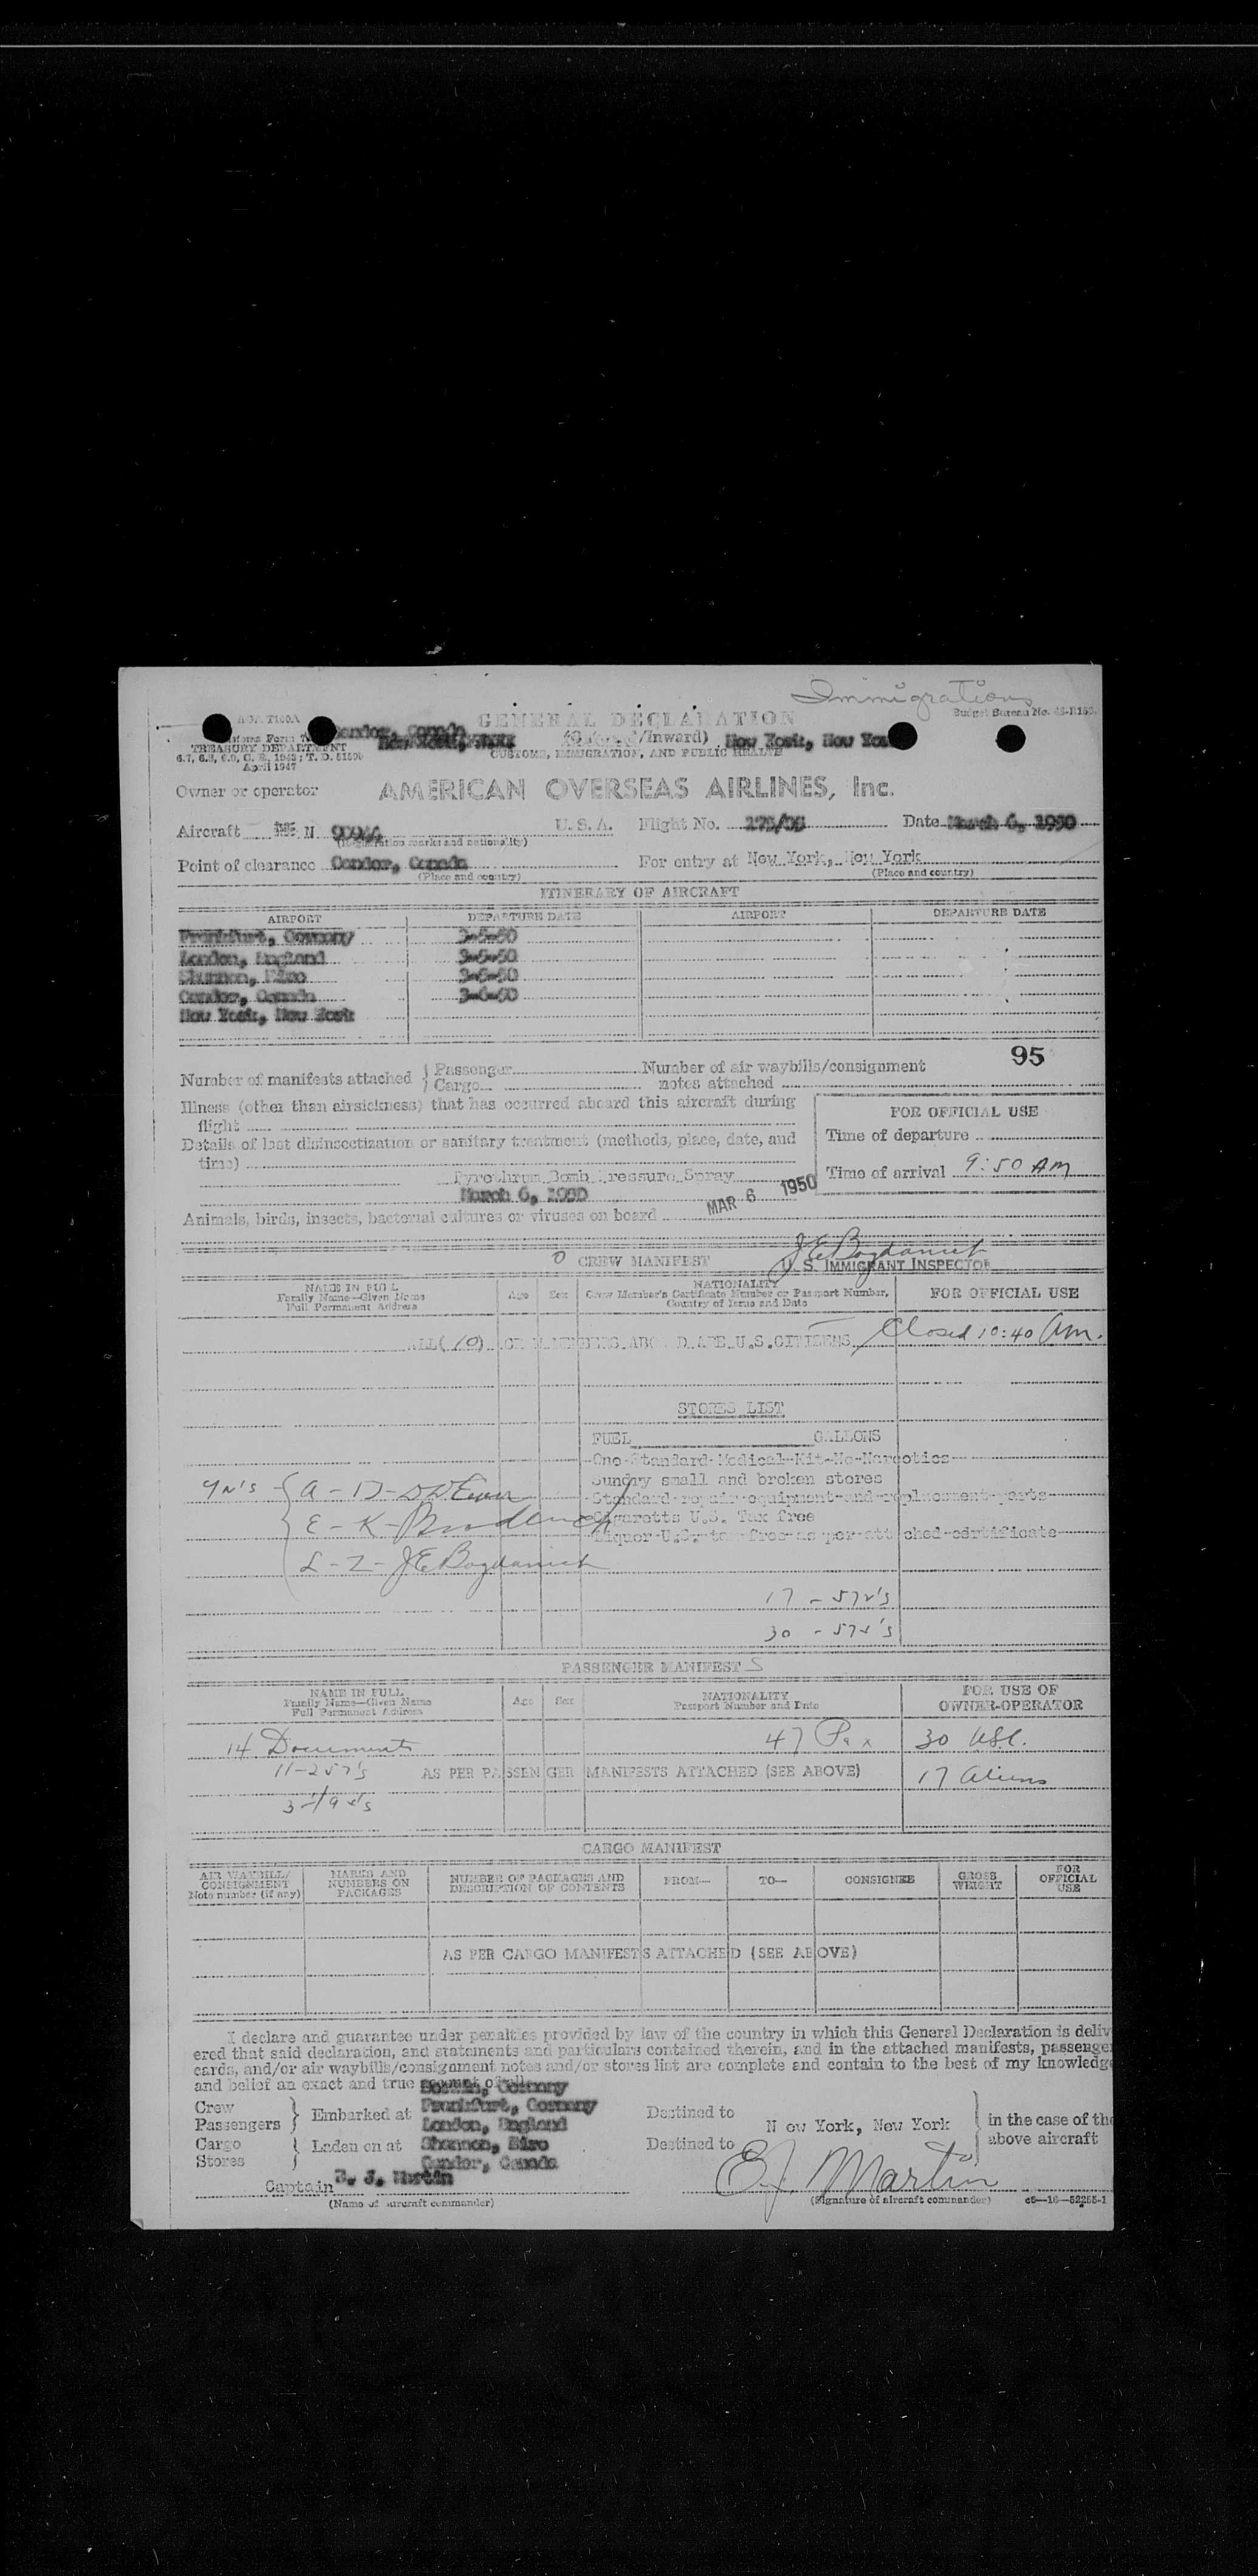 Immigration
GENERAL DECLARATION
Budget Bureau No.
Gander, Canada
(Outward/Inward) New York, New York
TREASURY DEPARTMENT
CUSTOMS, IMMIGRATION, AND PUBLIC HEALTH
April 1947
Owner or operator AMERICAN OVERSEAS AIRLINES, Inc.
Aircraft N 90944 U. S. A. Flight No. Date March 6, 1950
(Registration marks and nationality)
Point of clearance Gander, Canada For entry at New York, New York
(Place and country) (Place and country)
ITINERARY OF AIRCRAFT
AIRPORT DEPARTURE DATE AIRPORT DEPARTURE DATE
Frankfurt, Germany 3-5-50
London, England 3-5-50
Shannon, Eire 3-5-50
Gander, Canada 3-6-50
New York, New York
95
Number of manifests attached { Passenger Number of air waybills/consignment
Cargo notes attached
Illness (other than airsickness) that has occurred aboard this aircraft during
flight
FOR OFFICIAL USE
Details of last disinsectization or sanitary treatment (methods, place, date, and
time)
Time of departure
Time of arrival 9:50 AM
Pyrethrum Bomb Pressure Spray
March 6, 1950
MAR 6 1950
Animals, birds, insects, bacterial cultures or viruses on board
J E Bogdanich
0 CREW MANIFEST
U. S. IMMIGRANT INSPECTOR
NAME IN FULL
Family Name—Given Name
Full Permanent Address
Age Sex
NATIONALITY
Crew Member's Certificate Number or Passport Number,
Country of Issue and Date
FOR OFFICIAL USE
ALL (10) CREW MEMBERS ABOARD ARE U.S. CITIZENS
Closed 10:40 Am.
STORES LIST
FUEL GALLONS
One Standard Medical Kit-No Narcotics
Sundry small and broken stores
Standard repair equipment and replacement parts
Cigaretts U.S. Tax free
Liquor U.S. tax free as per attached certificate
A - D -
E - K -
L - Z - J E Bogdanich
17 -
30 -
PASSENGER MANIFEST S
NAME IN FULL
Family Name—Given Name
Full Permanent Address
Age Sex
NATIONALITY
Passport Number and Date
FOR USE OF
OWNER-OPERATOR
14 Documents 47 Pax 30 USC.
11-257's AS PER PASSENGER MANIFESTS ATTACHED (SEE ABOVE) 17 aliens
CARGO MANIFEST
AIR WAYBILL/
CONSIGNMENT
Note number (if any)
MARKS AND
NUMBERS ON
PACKAGES
NUMBER OF PACKAGES AND
DESCRIPTION OF CONTENTS
FROM— TO— CONSIGNEE
GROSS
WEIGHT
FOR
OFFICIAL
USE
AS PER CARGO MANIFESTS ATTACHED (SEE ABOVE)
I declare and guarantee under penalties provided by law of the country in which this General Declaration is deliv
ered that said declaration, and statements and particulars contained therein, and in the attached manifests, passenger
cards, and/or air waybills/consignment notes and/or stores list are complete and contain to the best of my knowledge
and belief an exact and true account of all
Crew
Passengers } Embarked at Frankfurt, Germany
London, England
Destined to New York, New York
in the case of the
above aircraft
Cargo
Stores } Laden on at Shannon, Eire
Gander, Canada
Destined to
Captain E. J. Martin
E.J. Martin
(Name of aircraft commander) (Signature of aircraft commander) c5—16—52255-1